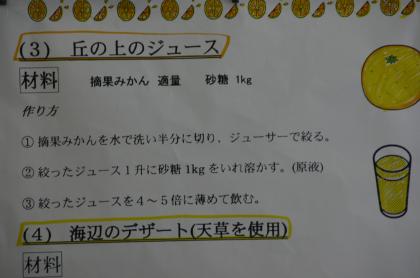 (3) 丘の上のジュース
材料 摘果みかん 適量 砂糖 1kg
作り方
① 摘果みかんを水で洗い半分に切り、ジューサーで絞る。
② 絞ったジュース1升に砂糖1kgをいれ溶かす。(原液)
③ 絞ったジュースを4～5倍に薄めて飲む。
(4) 海辺のデザート(天草を使用)
材料